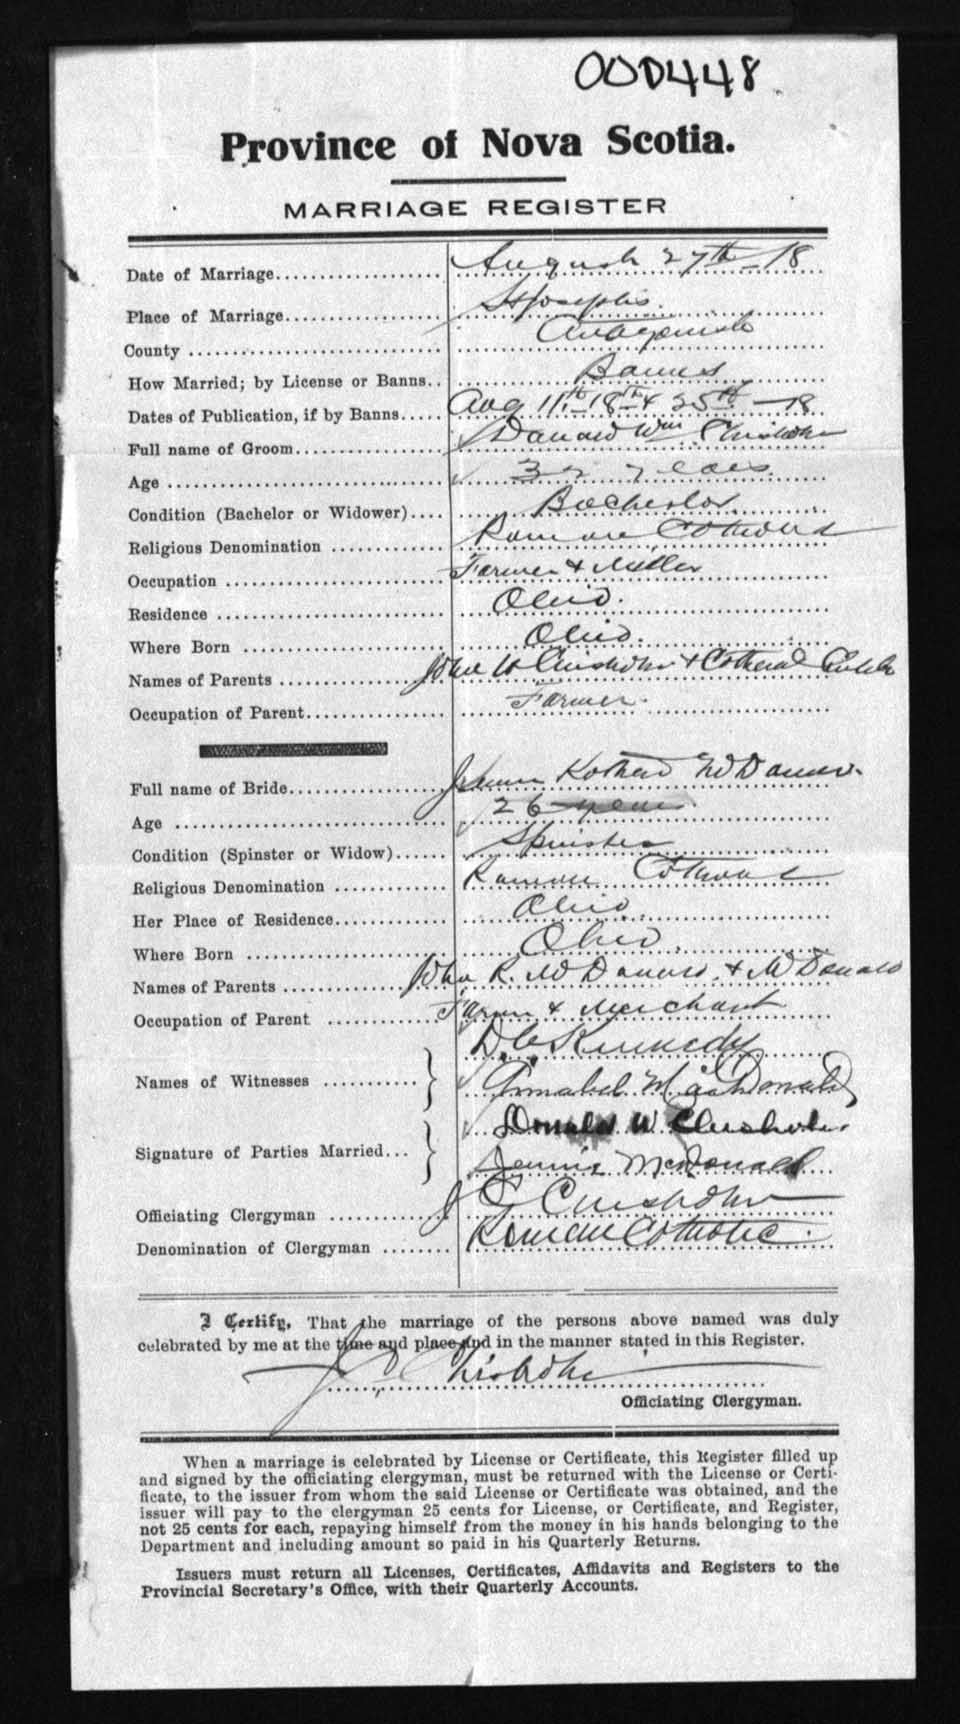 000448
Province of Nova Scotia.
MARRIAGE REGISTER
Date of Marriage.................... August 27th - 18
Place of Marriage................... St Josephs.
County .............................. Antagonish
How Married; by License or Banns.. Banns
Dates of Publication, if by Banns..... Aug 11th - 18th & 25th - 18
Full name of Groom.................. Donald Wm Chisholm
Age ................................. 32 years
Condition (Bachelor or Widower).... Bachelor
Religious Denomination .............. Roman
Occupation .......................... Farmer & Miller
Residence ........................... Ohio.
Where Born ........................ Ohio.
Names of Parents .................... John W Chisholm &
Occupation of Parent................. Farmer.
Full name of Bride................... McDonald.
Age ................................. 26 years
Condition (Spinster or Widow)...... Spinster
Religious Denomination ............. Roman
Her Place of Residence.............. Ohio
Where Born ........................ Ohio.
Names of Parents .................... John R. McDonald & McDonald
Occupation of Parent .............. & Merchant
D. C. Kennedy
Names of Witnesses ............
Annabel MacDonald
Donald W Chisholm
Signature of Parties Married...
Jennie McDonald
Officiating Clergyman .............. J C Chisholm
Denomination of Clergyman ........ Roman Catholic.
I Certify, That the marriage of the persons above named was duly
celebrated by me at the time and place and in the manner stated in this Register.
J C Chisholm
Officiating Clergyman.
When a marriage is celebrated by License or Certificate, this Register filled up
and signed by the officiating clergyman, must be returned with the License or Certi-
ficate, to the issuer from whom the said License or Certificate was obtained, and the
issuer will pay to the clergyman 25 cents for License, or Certificate, and Register,
not 25 cents for each, repaying himself from the money in his hands belonging to the
Department and including amount so paid in his Quarterly Returns.
Issuers must return all Licenses, Certificates, Affidavits and Registers to the
Provincial Secretary's Office, with their Quarterly Accounts.